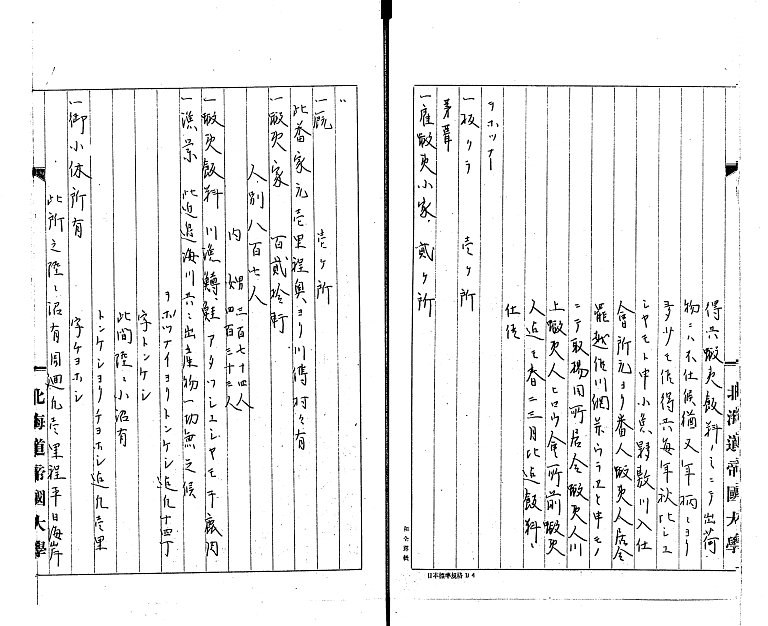 得共蝦夷飯料ノミニテ出荷
物ニハ不仕候猶又年柄ニヨリ
多少モ仕得共毎年秋此シユ
シヤモト申小魚夥敷川入仕
會所元ヨリ番人蝦夷人居合
罷越佐川網并ウライと申モノ
ニテ取揚同所居合蝦夷人川
上蝦夷人ヒロウ會所前蝦夷
人迄モ春二三月比迄飯料ニ
仕候
ヲホツナー
一板クラ 壱ヶ所
茅葺
一雇蝦夷小家 貳ヶ所
北海道帝國大學
日本標準規格B4
〃
一厩 壱ヶ所
此番家元壱里程奥ヨリ川傳村々有
一蝦夷家 百貳拾軒
人別八百七人
内 男三百七十四人
女四百三十三人
一蝦夷飯料 川漁鱒鮭アタツシユシヤモ干鹿肉
一漁業 此近邊海川共ニ出産物一切無之候
ヲホツナイヨリトンケシ迄九十四丁
字トンケシ
此間陸ニ小沼有
トンケシヨリチヨホシ迄九壱里
一御小休所有 字チヨホシ
此所之陸ニ沼有周廻九壱里程平日海岸
北海道帝國大學